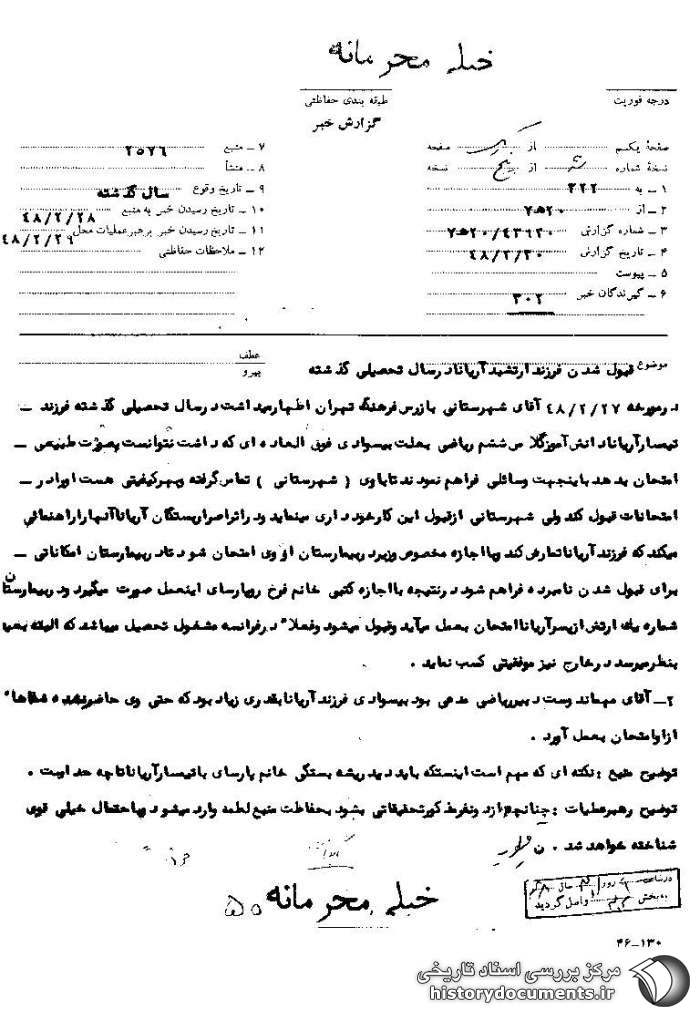 خیلی محرمانه
درجه فوریت
طبقه بندی حفاظتی
گزارش خبر
صفحهٔ یکم از یک صفحه
نسخهٔ شماره از پنج نسخه
۱ ـ به ۳۲۲
۲ ـ از ۲۰ه۷
۳ ـ شماره گزارش ۲۰/۴۳۹۲۰ه۷
۴ ـ تاریخ گزارش ۴۸/۲/۳۰
۵ ـ پیوست
۶ ـ گیرندگان خبر ۳۰۲
۷ ـ منبع ۲۵۷۶
۸ ـ منشأ
۹ ـ تاریخ وقوع سال گذشته
۱۰ ـ تاریخ رسیدن خبر به منبع ۴۸/۲/۲۸
۱۱ ـ تاریخ رسیدن خبر برهبر عملیات محل ۴۸/۲/۲۹
۱۲ ـ ملاحظات حفاظتی
موضوع قبول شدن فرزند ارتشبد آریانا در سال تحصیلی گذشته
عطف
پیرو
در مورخه ۴۸/۲/۲۷ آقای شهرستانی بازرس فرهنگ تهران اظهار میداشت در سال تحصیلی گذشته فرزند ـ
تیمسار آریانا دانش آموز کلاس ششم ریاضی بعلت بیسوادی فوق العاده ای که داشت نتوانست بصورت طبیعی ـ
امتحان بدهد باینجهت وسائلی فراهم نمودند تا باوی ( شهرستانی ) تماس گرفته و بهر کیفیتی هست او را در ـ
امتحانات قبول کند ولی شهرستانی از قبول این کار خودداری مینماید و در اثر اصرار بستگان آریانا آنها را راهنمائی
میکند که فرزند آریانا تمارض کند و با اجازه مخصوص وزیر در بیمارستان از وی امتحان شود تا در بیمارستان امکاناتی ـ
برای قبول شدن نامبرده فراهم شود در نتیجه با اجازه کتبی خانم فرخ رو پارسای اینعمل صورت میگیرد و در بیمارستان
شماره یک ارتش از پسر آریانا امتحان بعمل میآید و قبول میشود و فعلا" در فرانسه مشغول تحصیل میباشد که البته بعید
بنظر میرسد در خارج نیز موفقیتی کسب نماید .
۲ـ آقای میهماندوست دبیر ریاضی مدعی بود بیسوادی فرزند آریانا بقدری زیاد بود که حتی وی حاضر نشده شفاها"
از او امتحان بعمل آورد .
توضیح منبع : نکته ای که مهم است اینستکه باید دید ریشه بستگی خانم پارسای با تیمسار آریانا تا چه حد است .
توضیح رهبر عملیات : چنانچه از دو نفر مذکور تحقیقاتی بشود بحفاظت منبع لطمه وارد میشود و باحتمال خیلی قوی
شناخته خواهد شد . ن
خیلی محرمانه
۵۰
در ساعت روز سال
به بخش ۳۲۲ واصل گردید
۴۶ـ۱۳۰
مرکز بررسی اسناد تاریخی
historydocuments.ir